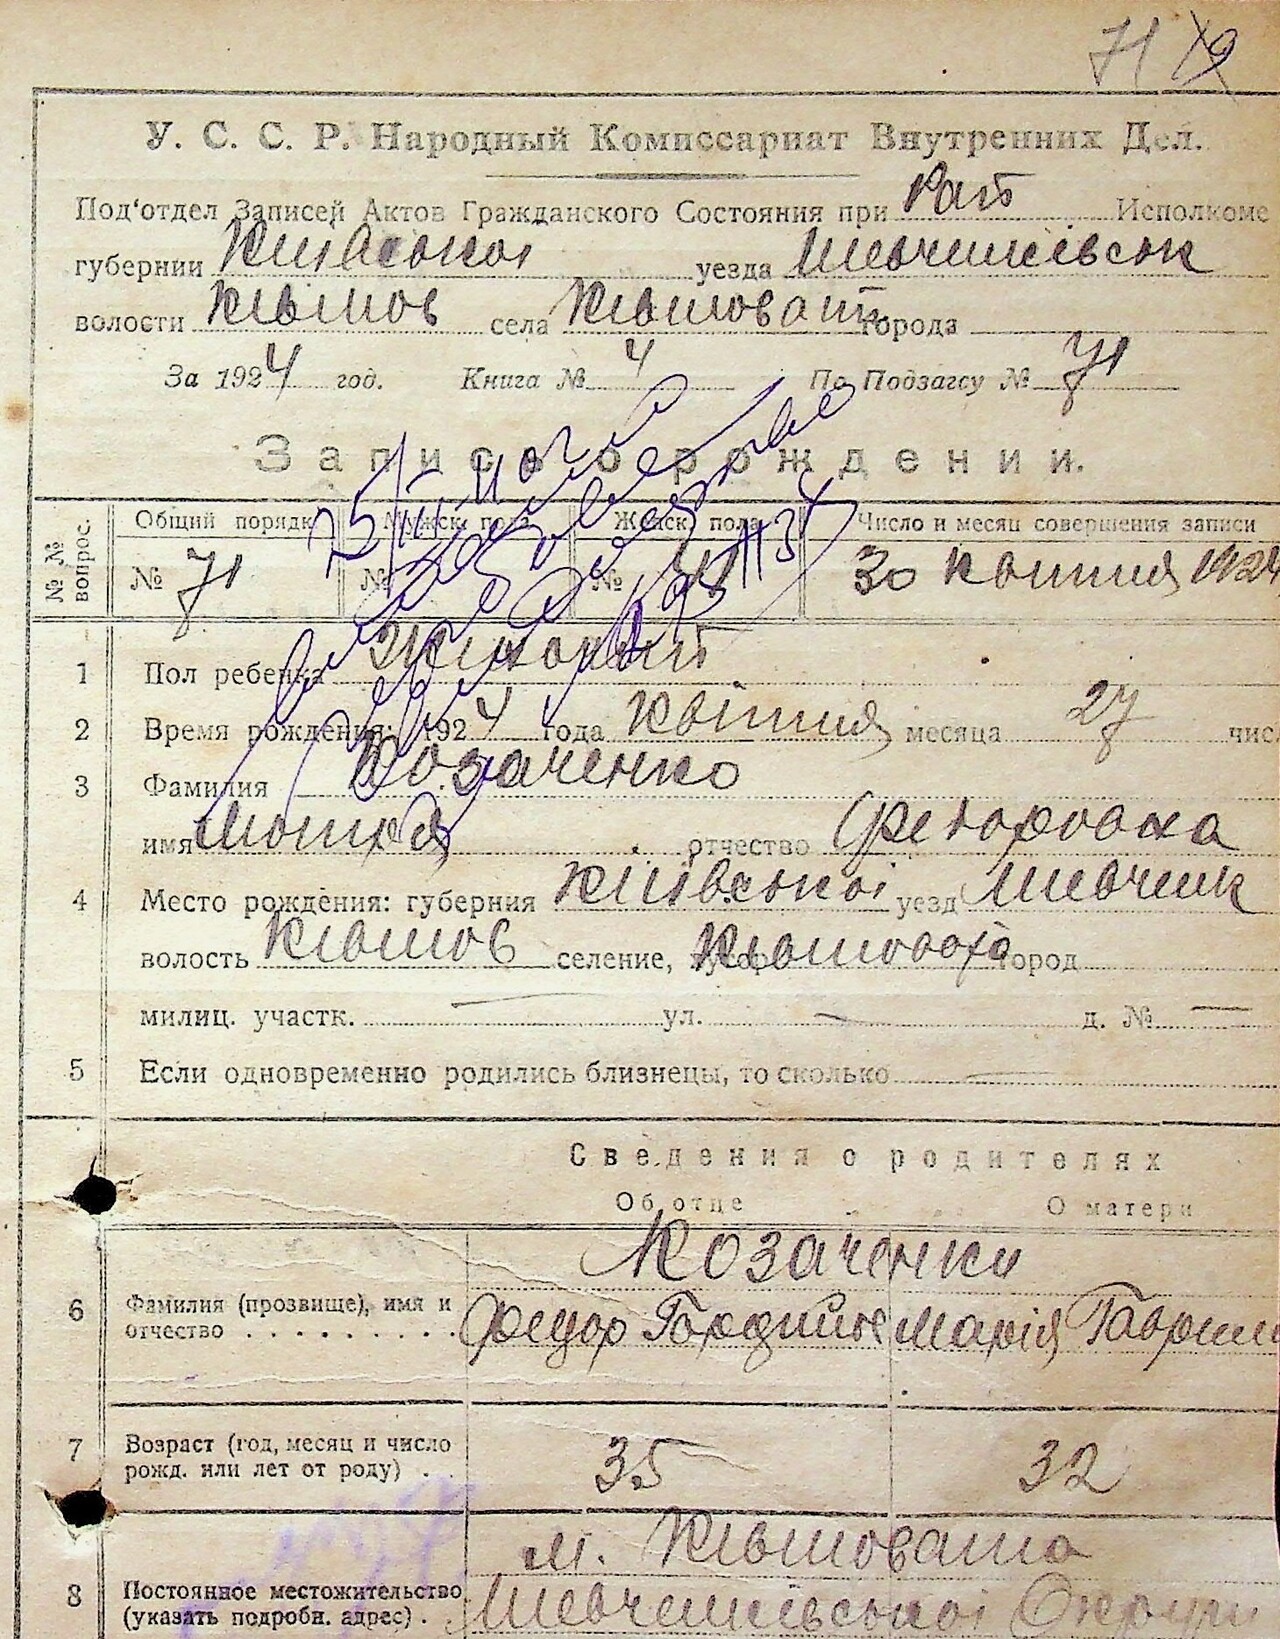 71 19
У. С. С. Р. Народный Комиссариат Внутренних Дел.
Под'отдел Записей Актов Гражданского Состояния при Рай Исполкоме
губернии Київської уезда Шевченківськ
волости Ківшов села Ківшоват города
За 1924 год. Книга № 4 По Подзагсу № 71
Запись о рождении.
№ № вопрос. Общий порядк Мужск. пола Женск. пола Число и месяц совершения записи
№ 71 № № 30 Квітня 1924
1 Пол ребенка Жіночий
2 Время рождения: 1924 года Квітня месяца 27 чис.
3 Фамилия Козаченко
имя Мотря отчество Федоровна
4 Место рождения: губерния Київської уезд Шевченк
волость Ківшов селение, хутор Ківшовата город
милиц. участк. — ул. — д. № —
5 Если одновременно родились близнецы, то сколько —
Сведения о родителях
Об отце О матери
Козаченки
6 Фамилия (прозвище), имя и отчество Федор Гордійов Марія Гаврил
7 Возраст (год, месяц и число рожд. или лет от роду) 35 32
м. Ківшовата
8 Постоянное местожительство (указать подробн. адрес) Шевченківської Округи